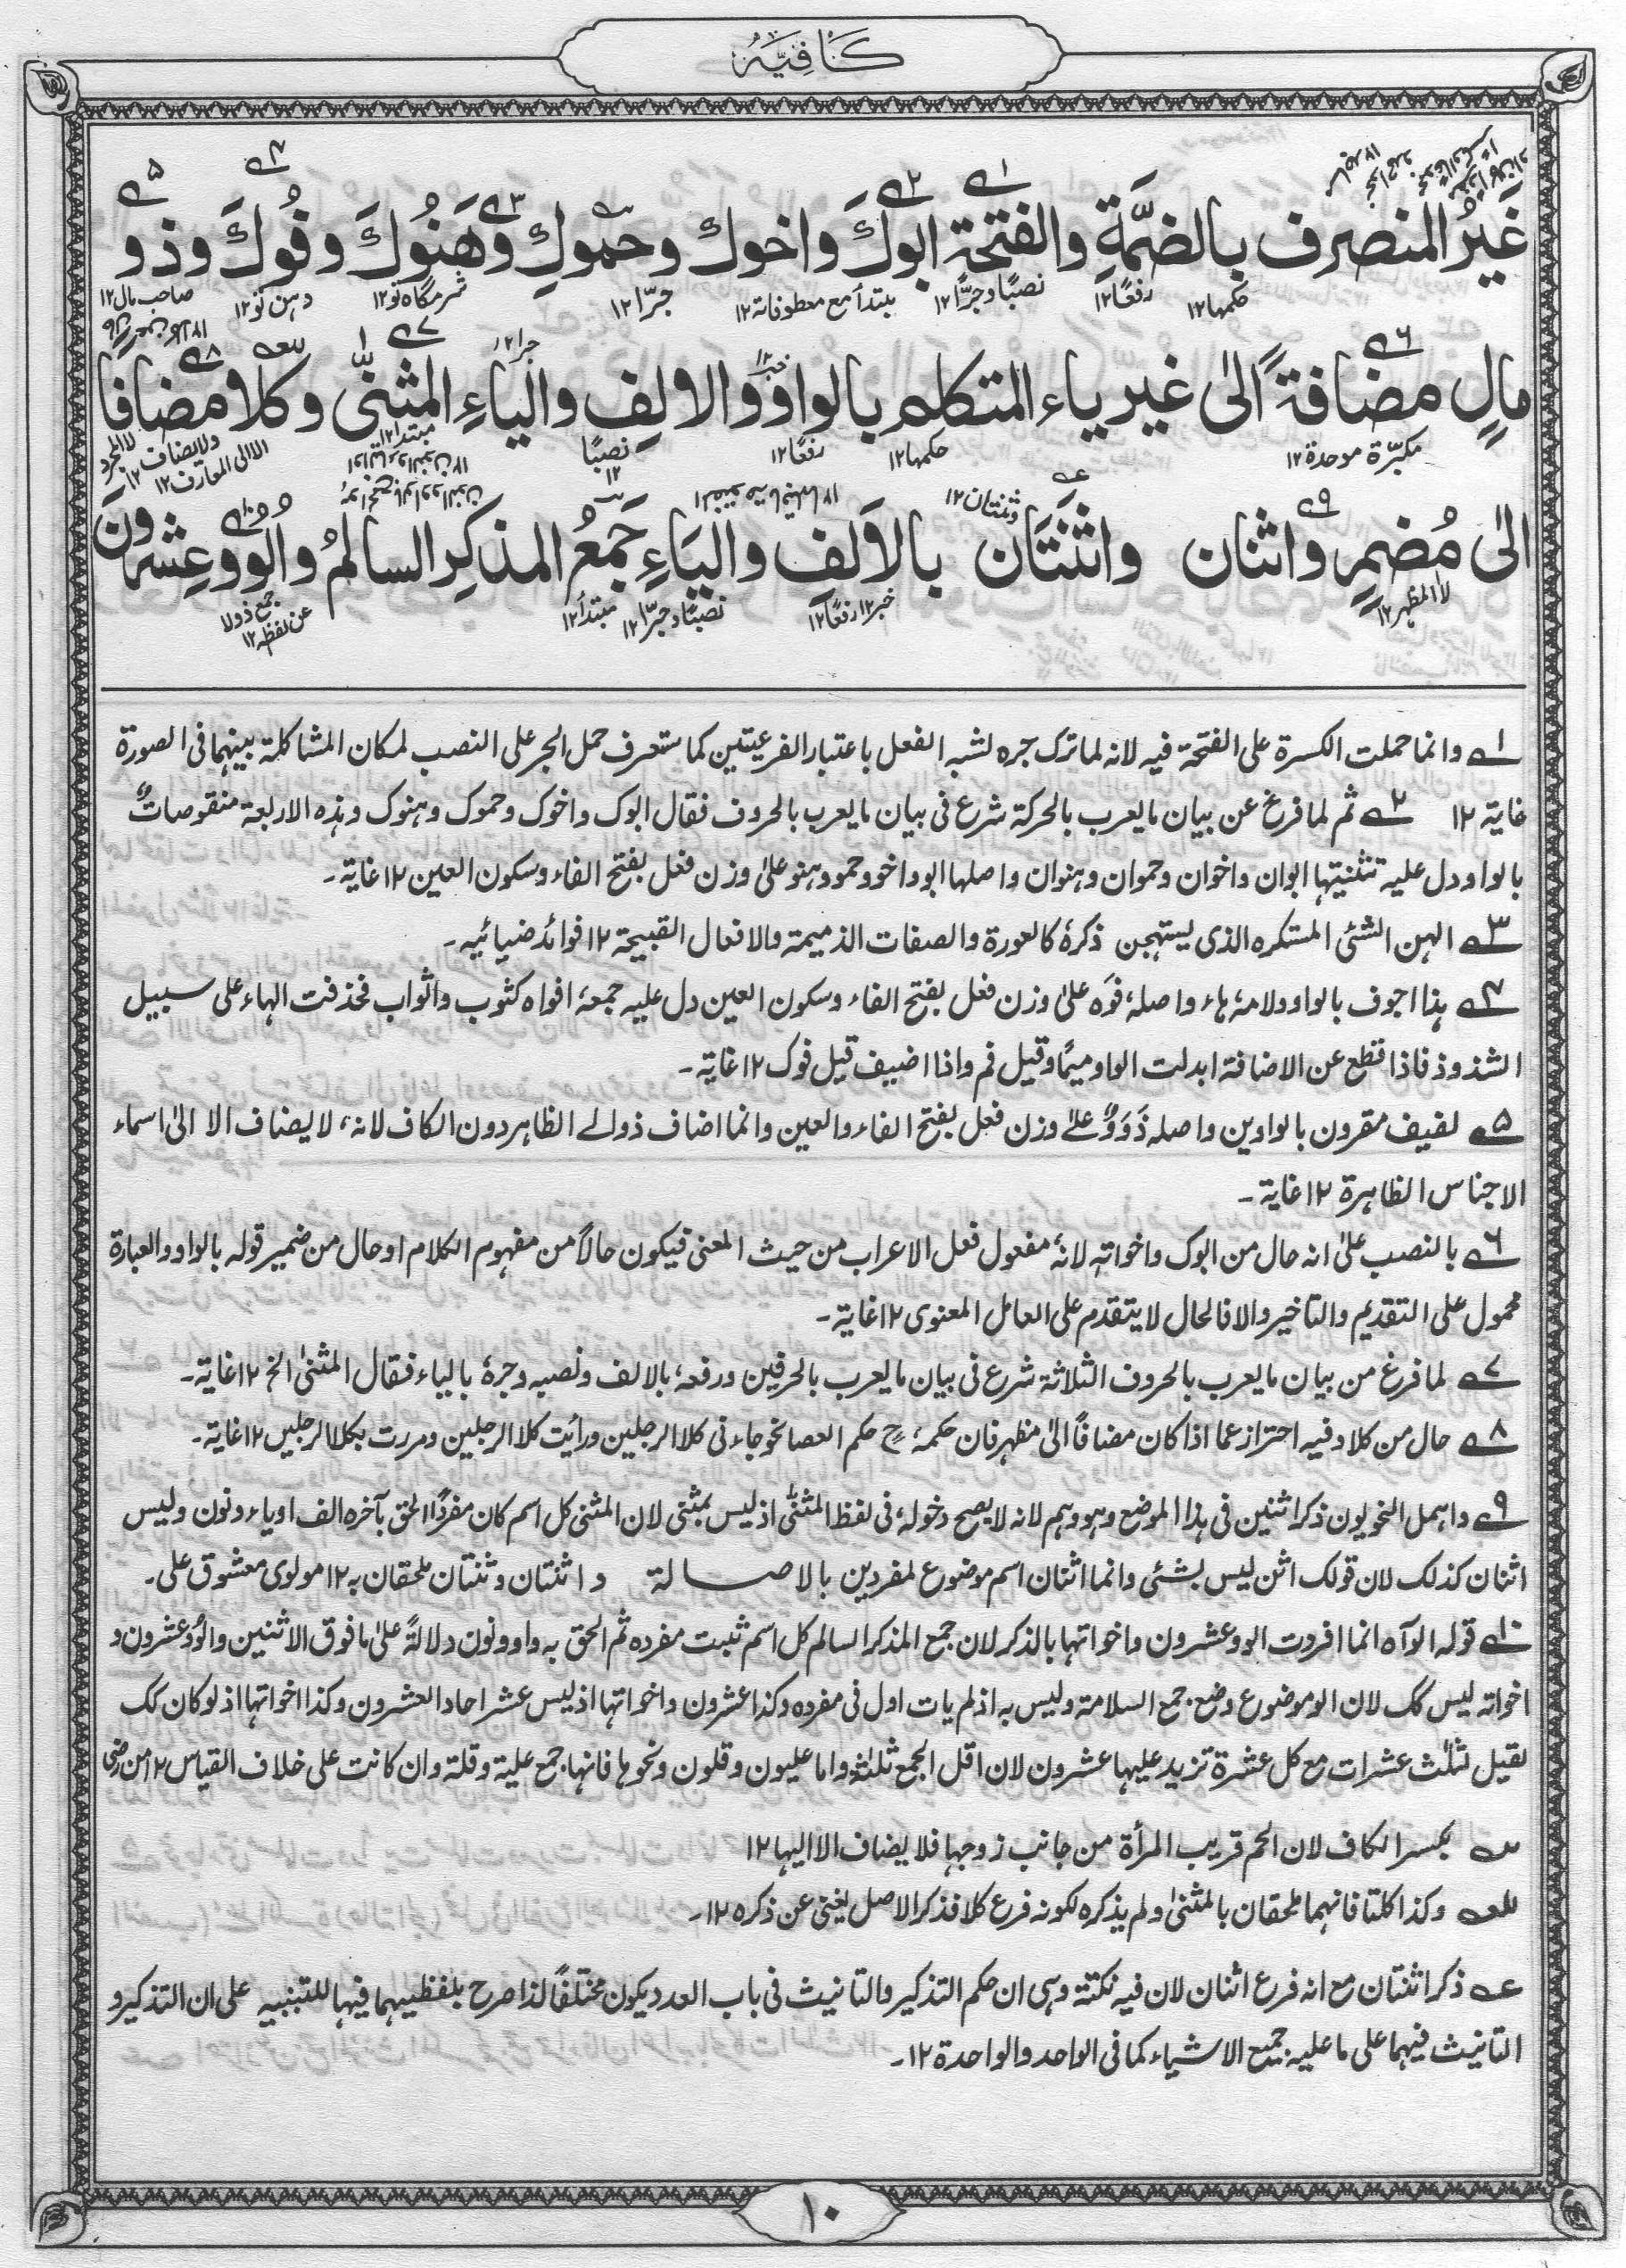 كَافِيَه
غَيْرُ المنصرف بالضمَّةِ والفتحة ابوكَ واخوك وحموكِ وَهَنُوكَ وفُوكَ وذو
حكمها١٢ رفعًا١٢ نصبًا وجرًّا١٢ مبتدأ مع معطوفاته١٢ جرّا١٢ شرمگاه تو١٢ دہن تو١٢ صاحب مال١٢
مالٍ مضافةً الىٰ غير ياء المتكلم بالواو والالف والياءِ المثنىّٰ وكلا مضافا
مكبرّة موحدة١٢ حكمها١٢ رفعًا١٢ نصبًا١٢ جرا١٢ مبتدا١٢
الىٰ مُضمرٍ واثنان واثنَتَان بالاَلفِ والياءِ جَمعُ المذكرِ السالمُ والووعِشرونَ
لا المظهر١٢ وثنتان١٢ خبر١٢ رفعًا١٢ نصبًا وجرّا١٢ مبتدأ١٢ جمع ذو لا عن لفظه١٢
١ے وانما حملت الكسرة على الفتحة فيه لانه لما ترك جره لشبه الفعل باعتبار الفرعيتين كما ستعرف حمل الجر على النصب لمكان المشاكلة بينهما فى الصورة
غاية ١٢ ٢ے ثم لما فرغ عن بيان ما يعرب بالحركة شرع فى بيان ما يعرب بالحروف فقال ابوك واخوك وحموك وهنوك وهذه الاربعة منقوصاتٌ
بالواو ودل عليه تثنيتها ابوان واخوان وحموان وهنوان واصلها ابو واخو وحمو وهنو علىٰ وزن فعل بفتح الفاء وسكون العين ١٢ غاية۔
٣ے الهن الشئى المستكره الذى يستهجن ذكرهٗ كالعورة والصفات الذميمة والافعال القبيحة ١٢ فوائد ضيائيه۔
٤ے هذا اجوف بالواو ولامهٗ هاء واصلهٗ فوَه علىٰ وزن فعل بفتح الفاء وسكون العين دل عليه جمعهٗ افواه كثوب واثواب فحذفت الهاء على سبيل
الشذوذ فاذا قطع عن الاضافة ابدلت الواو ميمًا وقيل فم واذا اضيف قيل فوك ١٢ غاية۔
٥ے لفيف مقرون بالواوين واصله ذَوَوٌ علےٰ وزن فعل بفتح الفاء والعين وانما اضاف ذو الے الظاهر دون الكاف لانهٗ لا يضاف الا الىٰ اسماء
الاجناس الظاهرة ١٢ غاية۔
٦ے بالنصب علىٰ انه حال من ابوك واخواته لانهٗ مفعول فعل الاعراب من حيث المعنى فيكون حالاً من مفهوم الكلام او حال من ضمير قوله بالواو والعبارة
محمول على التقديم والتاخير والا فالحال لا يتقدم على العامل المعنوى ١٢ غاية۔
٧ے لما فرغ من بيان ما يعرب بالحروف الثلاثة شرع فى بيان ما يعرب بالحرفين ورفعهٗ بالالف ونصبه وجرهٗ بالياء فقال المثنىٰ الخ ١٢ غاية۔
٨ے حال من كلا وفيه احتراز عما اذا كان مضافًا الىٰ مظهر فان حكمهٗ ح حكم العصا نحو جاءنى كلا الرجلين ورأيت كلا الرجلين ومررت بكلا الرجلين ١٢ غاية۔
٩ے واهمل النحويون ذكر اثنين فى هذا الموضع وهو وهم لانه لا يصح دخولهٗ فى لفظ المثنّٰى اذ ليس بمثنى لان المثنى كل اسم كان مفردًا الحق بآخره الف او ياء ونون وليس
اثنان كذلك لان قولك اثن ليس بشئى وانما اثنان اسم موضوع لمفردين بالاصالة واثنتان وثنتان ملحقان به ١٢ مولوى معشوق على۔
١٠ے قوله الوآه انما افردت الو وعشرون واخواتها بالذكر لان جمع المذكر السالم كل اسم ثبت مفرده ثم الحق به واو ونون دلالةً علىٰ ما فوق الاثنين والو وعشرون و
اخواته ليس كك لان الو موضوع وضع جمع السلامة وليس به اذ لم يات اول فى مفرده وكذا عشرون واخواتها اذ ليس عشر احاد العشرون وكذا اخواتها اذ لو كان كك
لقيل لثلث عشرات مع كل عشرة تزيد عليها عشرون لان اقل الجمع ثلثةٌ واما عليون وقلون ونحوها فانها جمع علية وقلة وان كانت على خلاف القياس ١٢ من رضى
بكسر الكاف لان الحم قريب المرأة من جانب زوجها فلا يضاف الا اليها ١٢
وكذا كلتا فانهما ملحقان بالمثنىٰ ولم يذكره لكونه فرع كلا فذكر الاصل يغنى عن ذكره ١٢۔
عــه ذكر اثنتان مع انه فرع اثنان لان فيه نكتة وهى ان حكم التذكير والتانيث فى باب العدد يكون مختلفًا لذا صرح بلفظيهما فيها للتنبيه على ان التذكير و
التانيث فيهما على ما عليه جميع الاشياء كما فى الواحد والواحدة ١٢۔
١٠